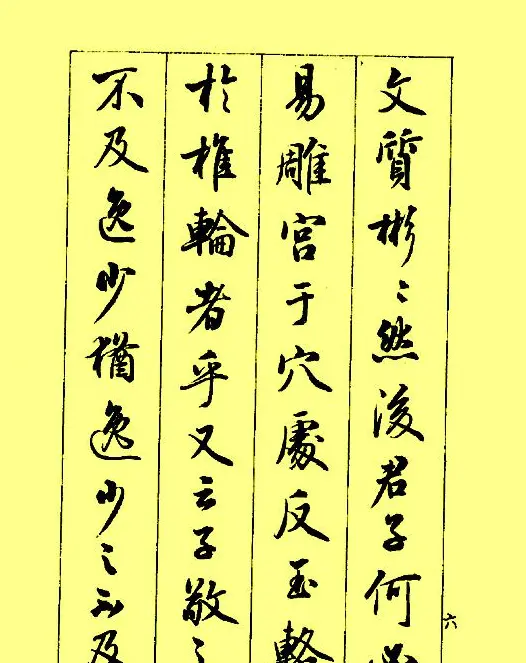 文質彬〻然後君子何必
易雕宮于穴處反玉輅
於椎輪者乎又云子敬之
不及逸少猶逸少之不及
六